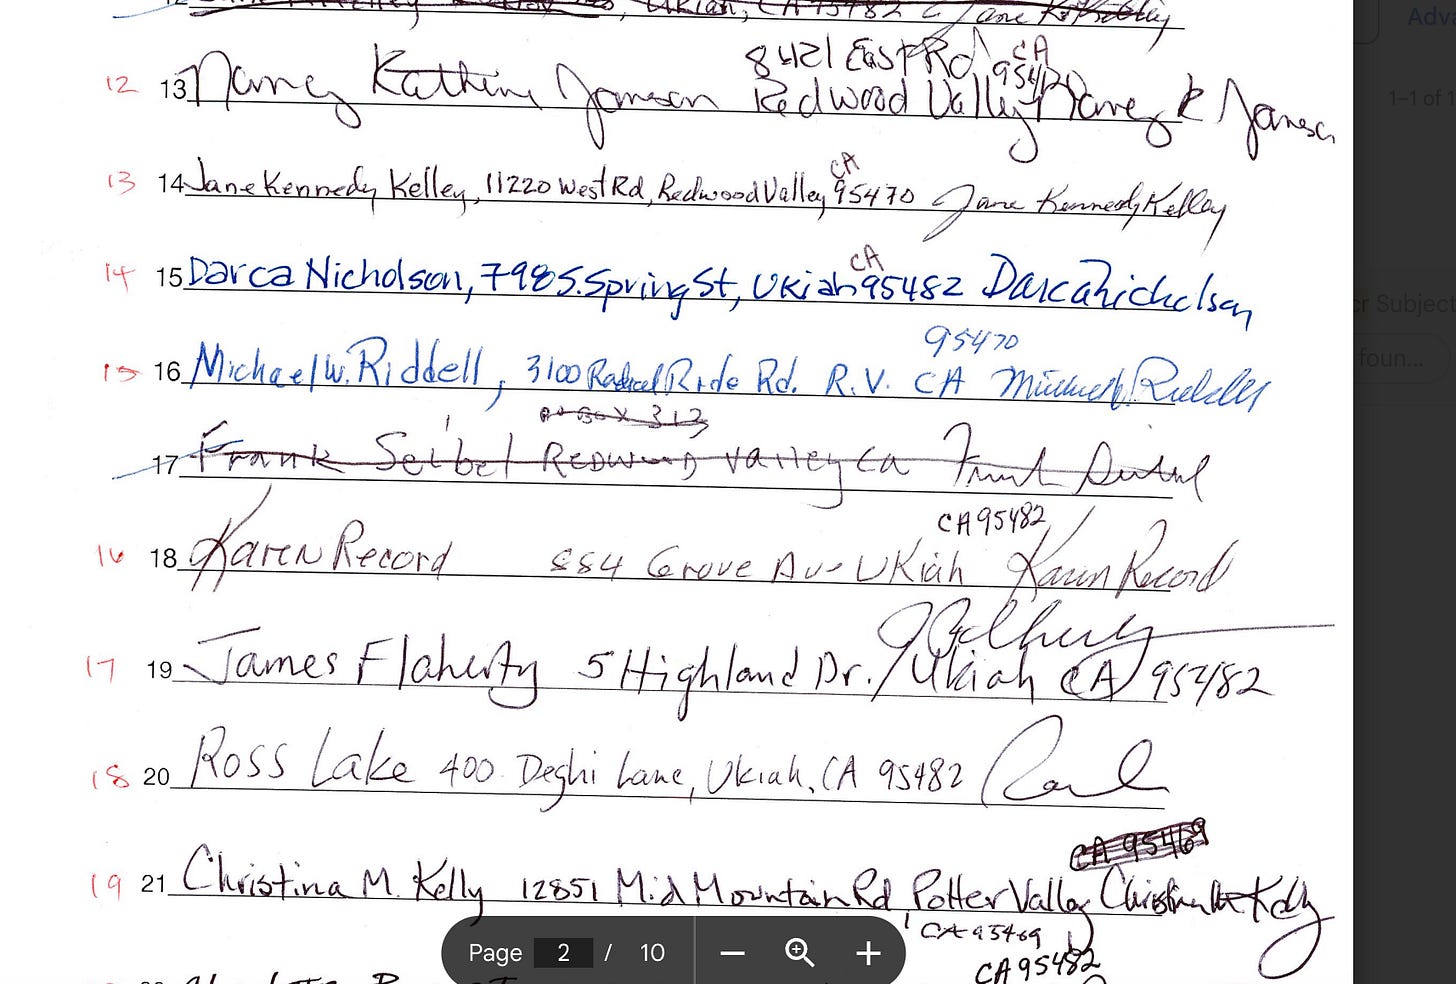 Ukiah, CA 95482
Adva
8421 East Rd CA
12 13 Nancy Kathine Jamson Redwood Valley 95470 Nancy K Jamson
1–1 of 1
CA
13 14 Jane Kennedy Kelley, 11220 West Rd, Redwood Valley 95470 Jane Kennedy Kelley
CA
14 15 Darca Nicholson, 798 S. Spring St, Ukiah 95482 Darca Nicholson
cr Subject
95470
15 16 Michael W. Riddell, 3100 Rd. R.V. CA Michael Riddell
foun...
Box 313
17 Frank Seibel Redwood Valley Ca Frank Seibel
CA 95482
16 18 Karen Record 884 Grove Ave Ukiah Karen Record
17 19 James Flaherty 5 Highland Dr. / Ukiah CA 95482
18 20 Ross Lake 400 Deghi Lane, Ukiah, CA 95482
CA 95469
19 21 Christina M. Kelly 12851 Mid Mountain Rd, Potter Valley Christina M Kelly
CA 95469
CA 95482
Page 2 / 10